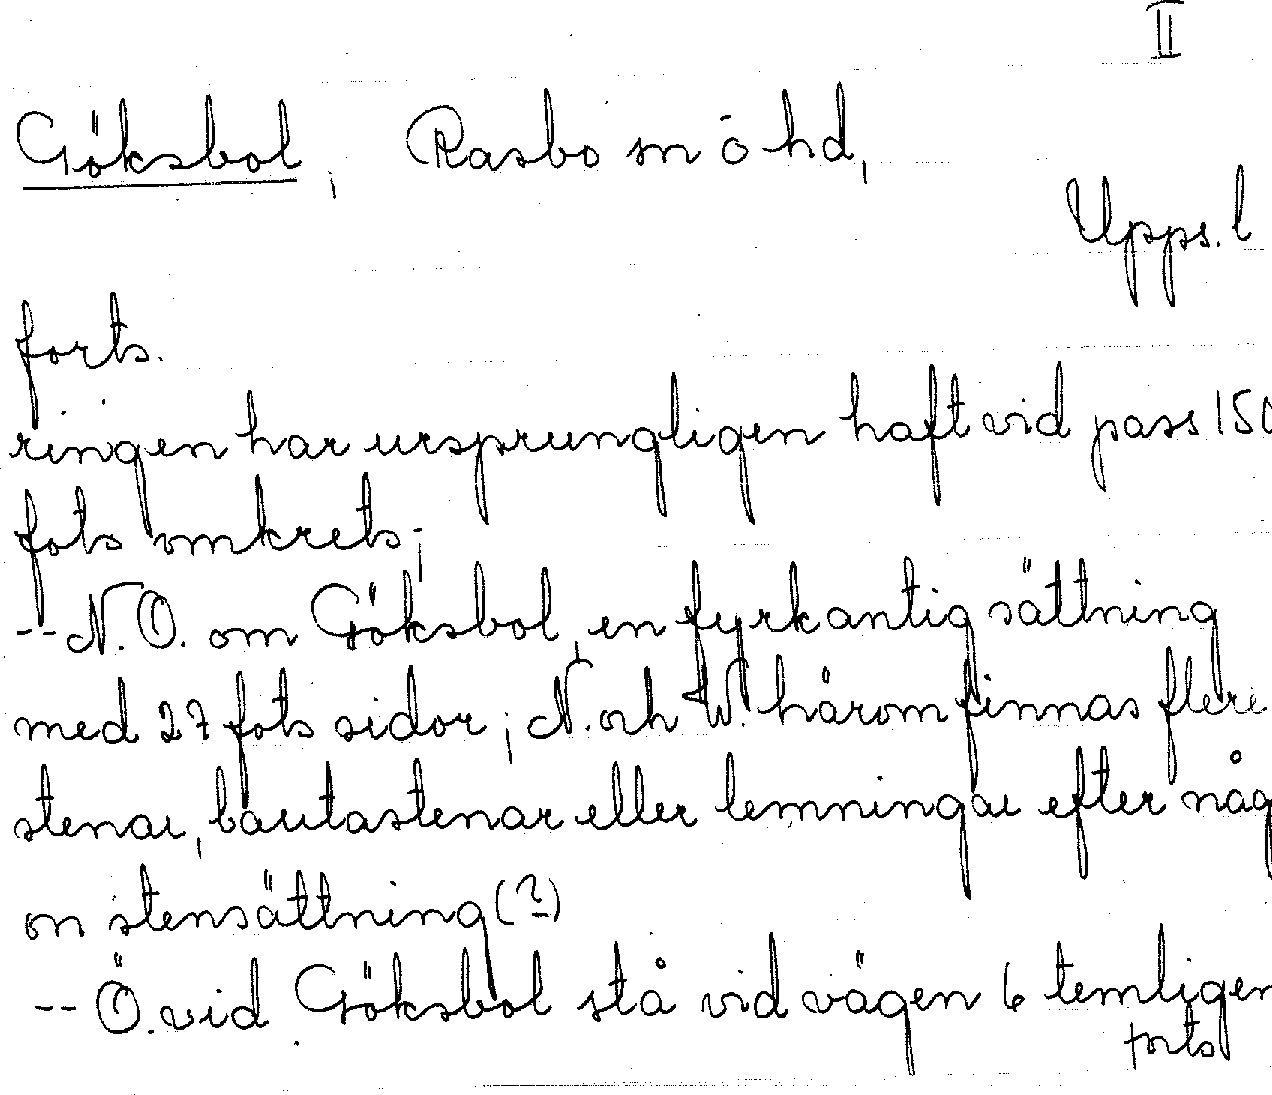 II
Göksbol, Rasbo sn o hd,
Upps. l
forts.
ringen har ursprungligen haft vid pass 150
fots omkrets;
-- N.O. om Göksbol, en fyrkantig sättning
med 27 fots sidor; N. och W. härom finnas flere
stenar, bautastenar eller lemningar efter någ
on stensättning (?)
-- Ö. vid Göksbol stå vid vägen 6 temligen
forts